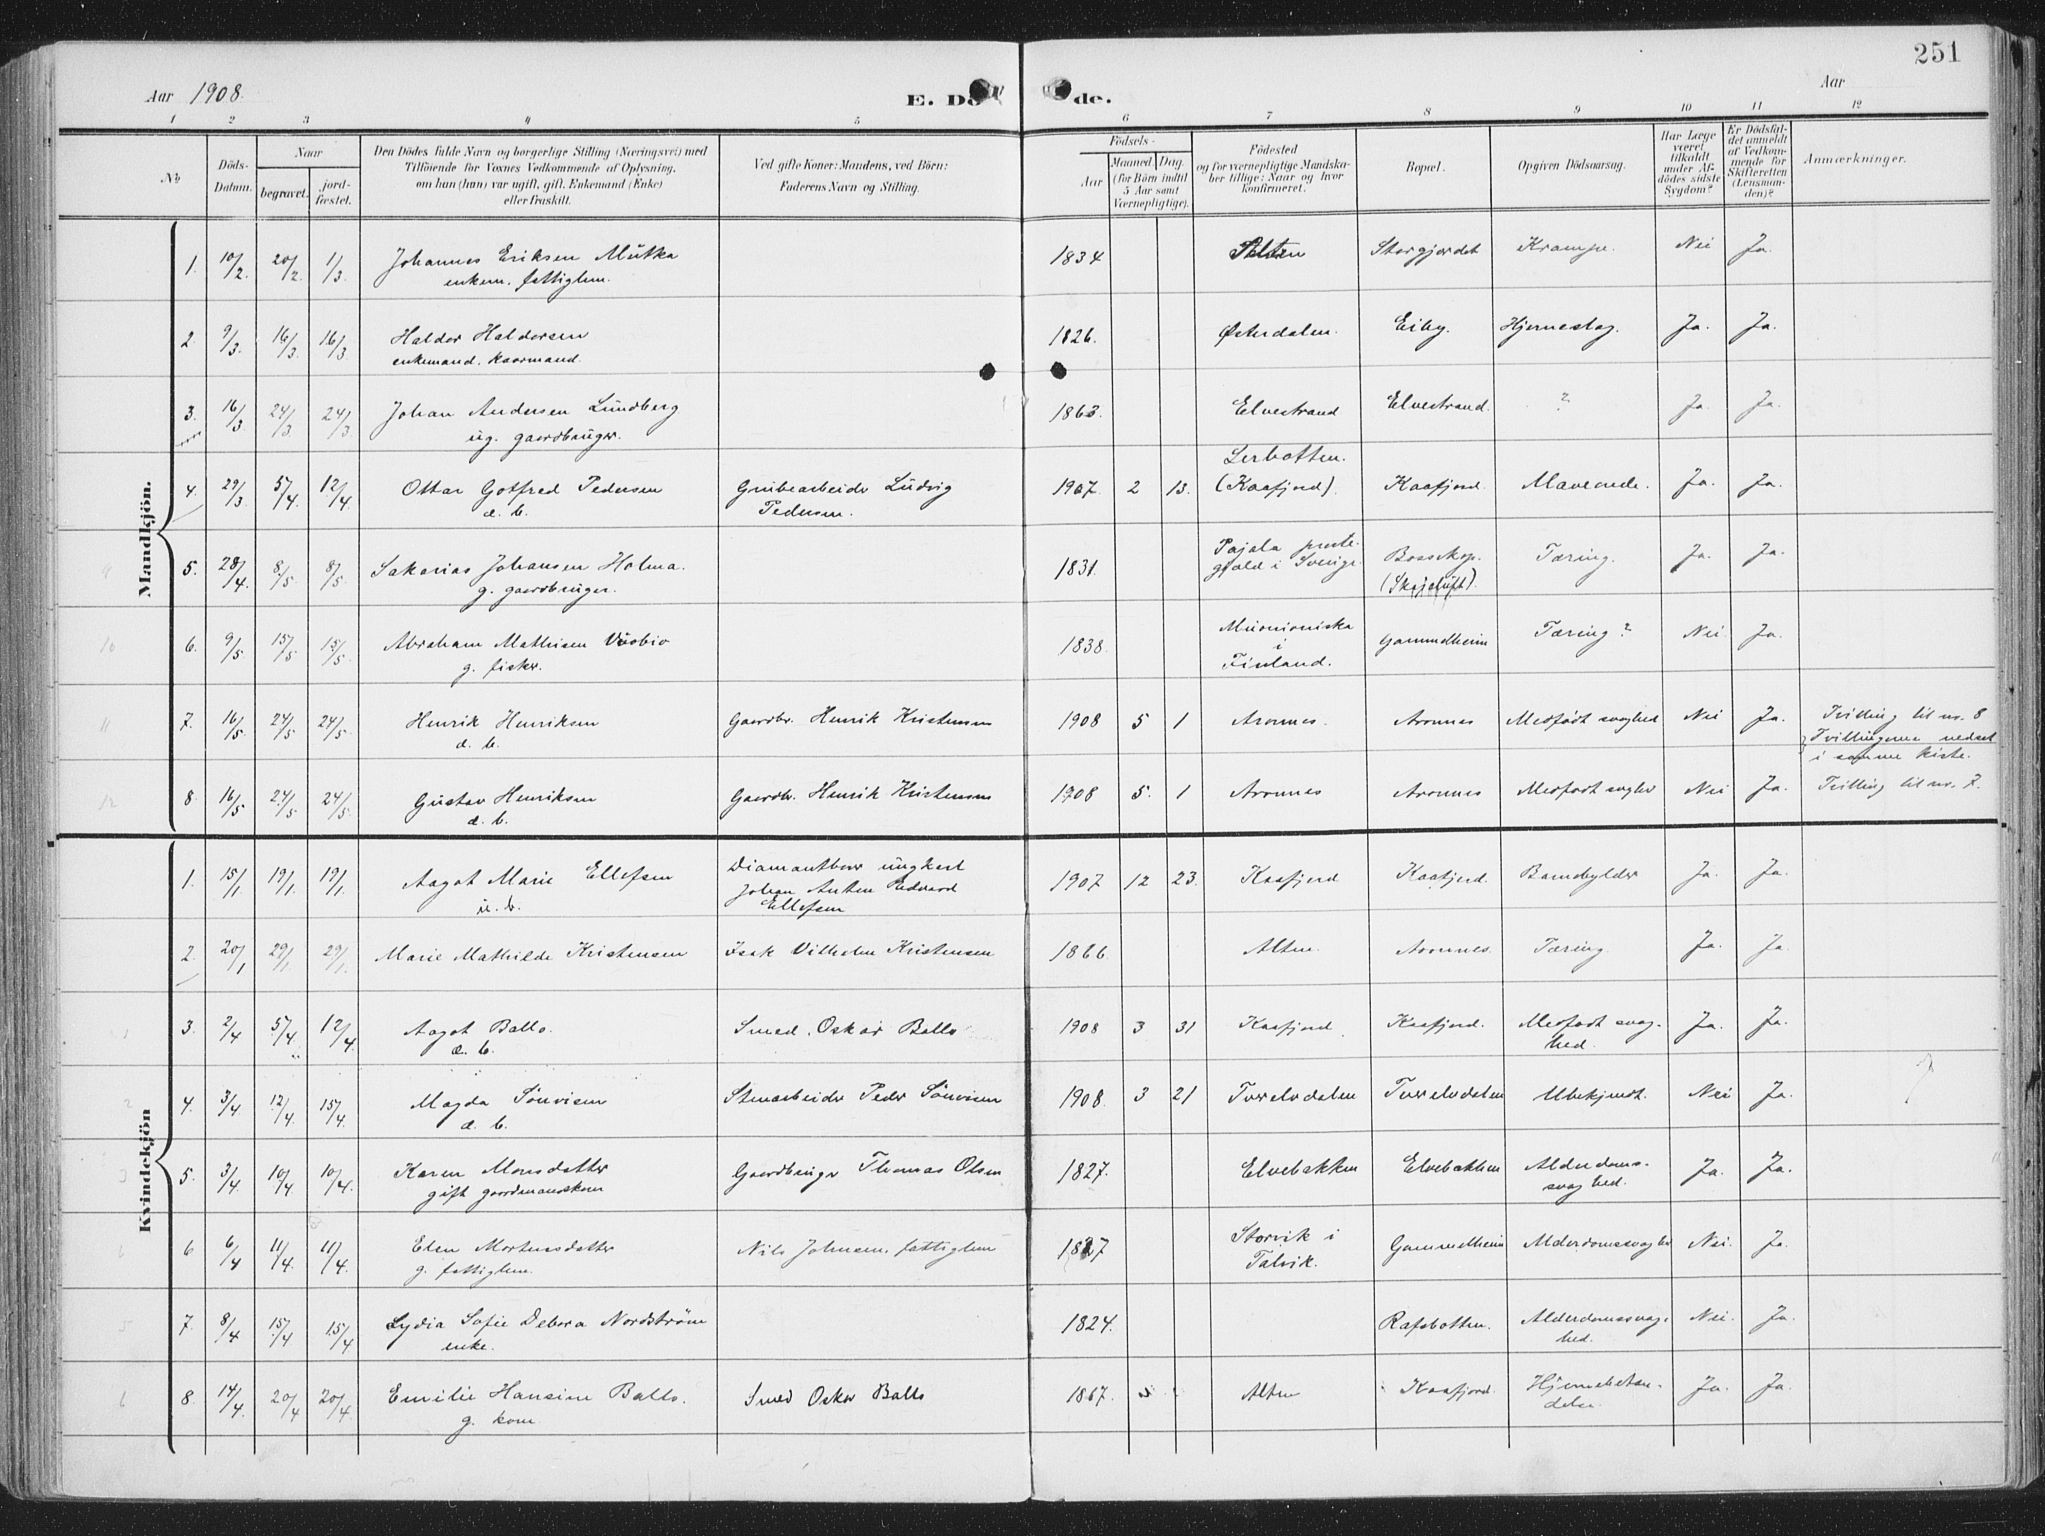 251
Aar 1908.
E. Dö de.
Aar
1 2 3 4 5 6 7 8 9 10 11 12
No
Döds-Datum.
Naar
begravet. jord-fæstet.
Den Dödes fulde Navn og borgerlige Stilling (Næringsvei) med
Tilföiende for Voxnes Vedkommende af Oplysning,
om han (hun) var ugift, gift, Enkemand (Enke)
eller fraskilt.
Ved gifte Koner: Mandens, ved Börn:
Faderens Navn og Stilling.
Födsels-
Aar
Maaned Dag
(for Börn indtil
5 Aar samt
Værnepligtige).
Födested
og for værnepligtige Mandska-
ber tillige: Naar og hvor
konfirmeret.
Bopæl.
Opgiven Dödsaarsag.
Har Læge
været
tilkaldt
under Af-
dödes sidste
Sygdom?
Er Dödsfal-
det anmeldt
af Vedkom-
mende for
Skifteretten
(Lensman-
den)?
Anmærkninger.
Mandkjön.
1. 10/2 20/2. 1/3 Johannes Eriksen Mutka 1834 Alten Storgjordet Krampe. Nei Ja.
enkem. fattiglem.
2 9/3 16/3. 16/3 Haldor Haldorsen 1826. Østerdalen. Eiby. Hjerneslag. Ja. Ja.
enkemand. kaarmand.
3. 16/3 24/3 24/3 Johan Andersen Lundberg 1863. Elvestrand Elvestrand. ? Ja Ja.
ug. gaardbruger.
4. 29/3 5/4 12/4 Ottar Gotfred Pedersen Grubearbeider Ludvig 1907. 2 13. Lerbotten. (Kaafjord). Kaafjord. Mavende. Ja. Ja.
æ. b. Pedersen.
5. 28/4. 8/5 8/5 Sakarias Johansen Holma. 1831. Pajala preste- Bossekop. Tæring. Ja Ja.
g. gaardbruger. gjæld i Sverige (Skjaduft).
6. 9/5 15/5 15/5 Abraham Mathisen 1838. Muonioniska Gammelheim Tæring ? Nei Ja.
g. fisker. i
Finland.
7. 16/5 24/5 24/5 Henrik Henriksen Gaardbr. Henrik Kristensen 1908 5 1 Aronnes. Aronnes Medfødt svaghed Nei Ja. Tvilling til no. 8
æ. b. Tvillingerne nedsat
i samme kiste.
8. 16/5 24/5 24/5 Gustav Henriksen Gaardbr. Henrik Kristensen 1908 5. 1 Aronnes Aronnes Medfødt svaghed Nei Ja. Tvilling til no. 7.
æ. b.
Kvindekjön
1. 15/1 19/1. 19/1 Aagot Marie Ellefsen Diamantborer ungkarl 1907 12 23. Kaafjord Kaafjord. Ja. Ja.
u. b. Johan Anton Edvard
Ellefsen
2. 20/1 29/1 29/1. Marie Mathilde Kristensen Isak Vilhelm Kristensen 1866. Alten. Aronnes. Tæring. Ja. Ja.
3. 2/4 5/4 12/4 Aagot Ballo. Smed. Oskar Ballo 1908 3 31 Kaafjord Kaafjord. Medfødt svag- Ja. Ja.
æ. b. hed.
4. 3/4 12/4 15/4. Magda Sönvisen Stenarbeider Peder Sönvisen 1908. 3 21 Tverelvdalen Tverelvdalen Ubekjendt. Nei Ja.
æ. b.
5. 3/4 10/4 10/4. Karen Monsdatter Gaardbruger Thomas Olsen 1827. Elvebakken Elvebakken Alderdoms- Ja. Ja.
gift gaardmandskone svaghed.
6 6/4 11/4. 11/4. Elen Mortensdatter Nils Johnsen, fattiglem 1827 Storvik i Gammelheim Alderdomssvaghed Nei. Ja.
g. fattiglem. Talvik.
7. 8/4 15/4 15/4 Lydia Sofie Debora Nordström 1824. Rafsbotten. Alderdomssvag- Nei. Ja.
enke. hed.
8. 14/4. 20/4 20/4 Emilie Hansine Ballo. Smed Oskar Ballo 1867. Alten Kaafjord. Hjernebetæn- Ja. Ja.
g. kone delse.